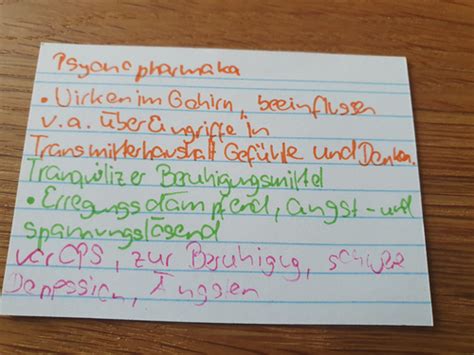 Psychopharmaka
• Wirken im Gehirn, beeinflussen
v.a. über Eingriffe in
Transmitterhaushalt Gefühle und Denken.
Tranquilizer Beruhigungsmittel
• Erregungsdämpfend, angst- und
spannungslösend
vor OPS, zur Beruhigung, schwere
Depression, Ängsten